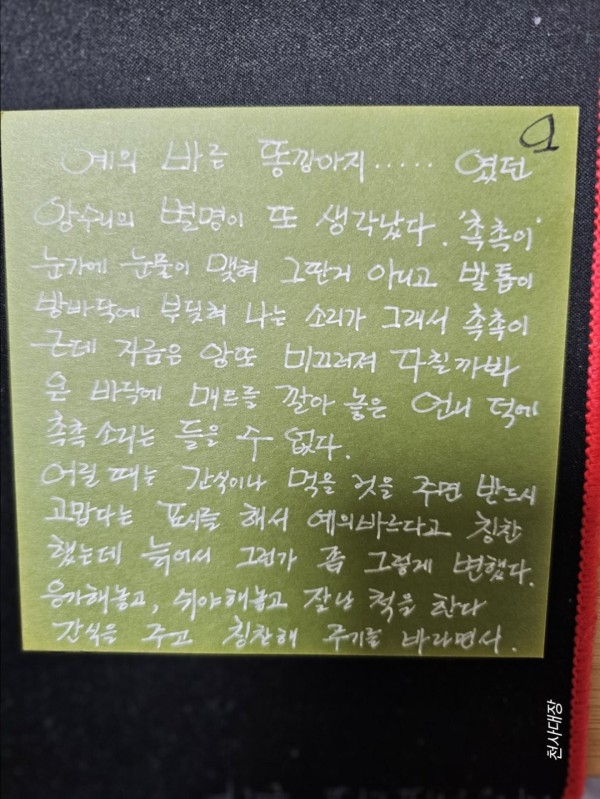 예의 바른 똥깡아지 ..... 였던
앙수니의 별명이 또 생각났다. '촉촉이'
눈가에 눈물이 맺혀 그딴거 아니고 발톱이
방바닥에 부딪혀 나는 소리가 그래서 촉촉이
근데 지금은 앙또 미끄러져 다칠까봐
온 바닥에 매트를 깔아 놓은 언니 덕에
촉촉 소리는 들을 수 없다.
어릴 때는 간식이나 먹을 것을 주면 반드시
고맙다는 표시를 해서 예의바르다고 칭찬
했는데 늙어서 그런가 좀 그렇게 변했다.
응가해놓고, 쉬야해놓고 잘난 척을 한다
간식을 주고 칭찬해 주기를 바라면서.
천사대장